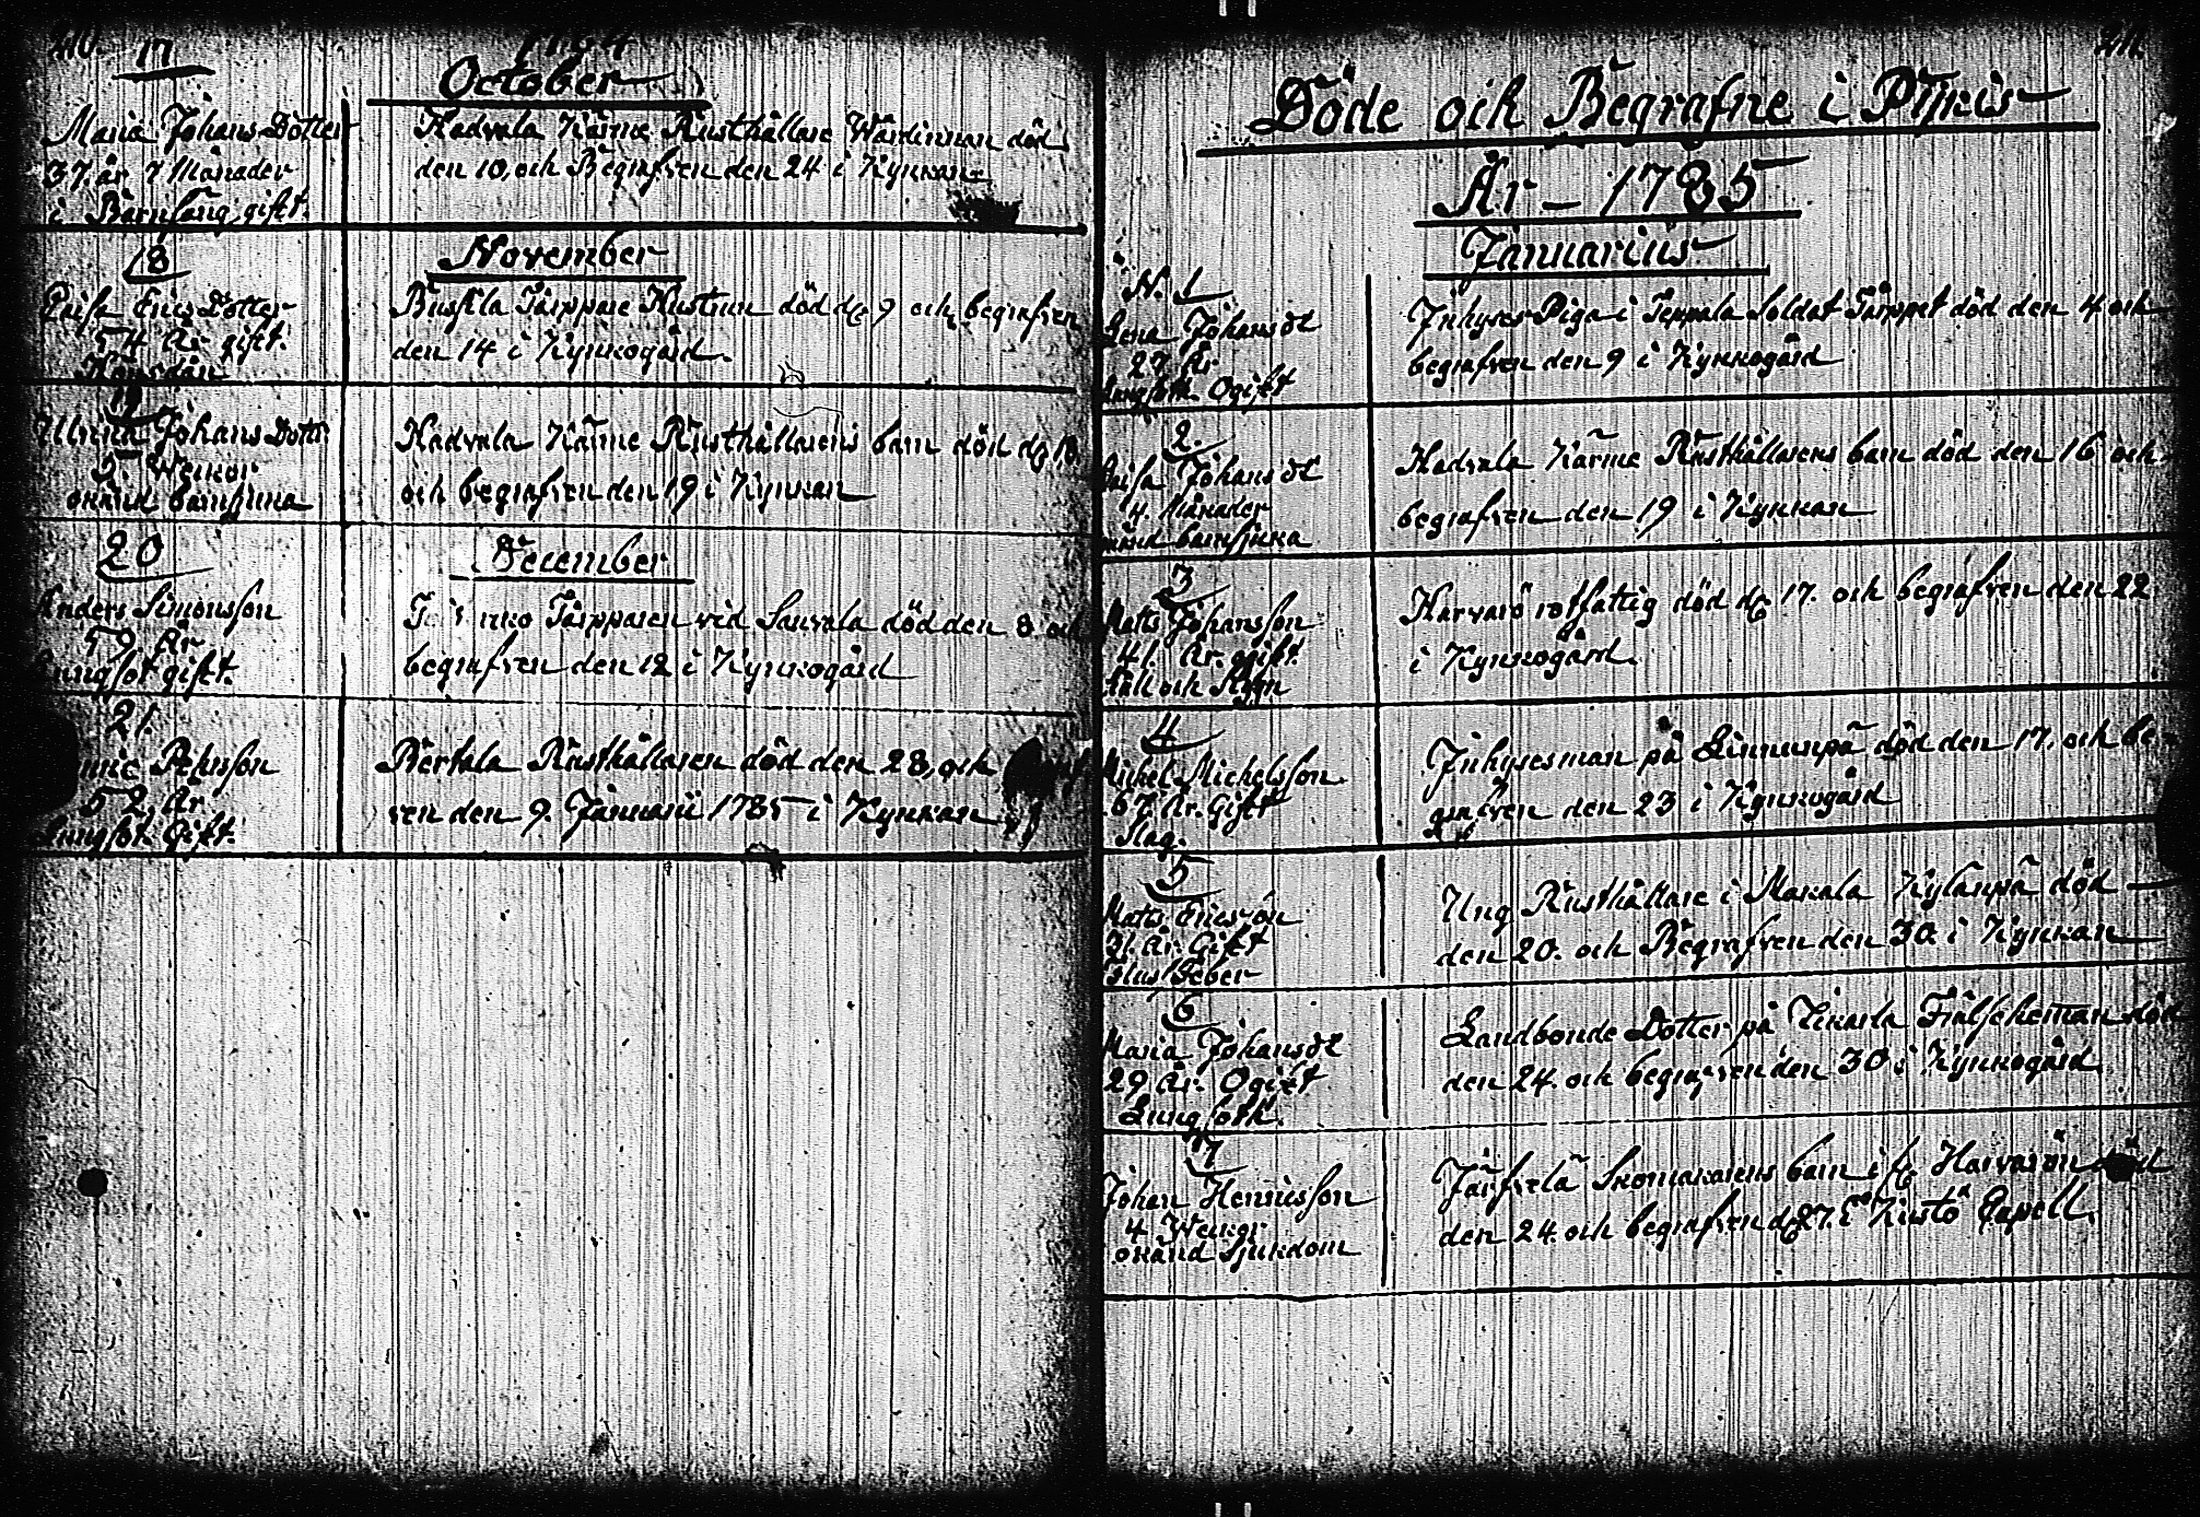 210.
17
1784
October
Maria Johans Dotter
37. år 7 Månader
i Barnsäng gift.
Kadvala Kärme Rusthållare Wärdinnan död
den 10, och Begrafven den 24 i Kyrkan
18
November
Caisa Erics Dotter
54 År gift.
Buskila Torppare Hustrun död dn 9 och begrafven
den 14 i Kyrkogård.
19
Johans Dotter
5 Weckor
okänd barnsjuka
Kadvala Kärme Rusthållarens barn död dn 18.
och begrafven den 19 i Kyrkan
20
December
Anders Simonsson
59 År
Lungsot gift.
Torpparen vid Sauvala död den 8 och
begrafven den 12 i Kyrkogård
21.
Pehrsson
52, År
Lungsot Gift.
Bertala Rusthållaren död den 28, och
ven den 9. Januarii 1785 i Kyrkan
211.
Döde och Begrafne i Pijkis
År – 1785
Januarius
N. 1
Lena Johans dr
27 År
Lungsott Ogift
Inhyses Piga i Teppala Soldat Torppet död den 4 och
begrafven den 9 i Kyrkogård
2.
Caisa Johans dr
4. Månader
okänd barnsjuka
Kadvala Kärme Rusthållarens barn död den 16 och
begrafven den 19 i Kyrkan
3
Matts Johansson
41. År. gift.
Håll och Stygn
Harvarö rotfattig död dn 17. och begrafven den 22
i Kyrkogård.
4
Michel Michelsson
67 År. Gift
Slag.
Inhysesman på Linnunpä död den 17. och be-
grafven den 23 i Kyrkogård
5
Matts Ericsson
31. År. Gift
Feber
Ung Rusthållare i Makala Kylänpä död
den 20. och Begrafven den 30. i Kyrkan
6
Maria Johans dr
29 År. Ogift
Lungsott.
Landbonde Dotter på Frälsehemman död
den 24. och begrafven den 30 i Kyrkogård.
7
Johan Henricsson
4 Weckor
okänd Sjukdom
Järfvelä Skomakarens barn ifr Harvarön död
den 24. och begrafven dn 27. i Kustö Capell.